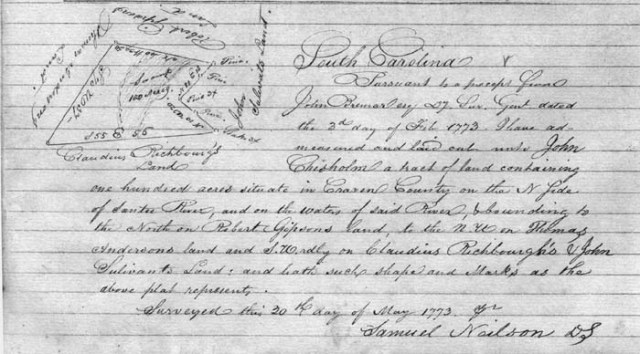 South Carolina
Pursuant to a precept from
John Bremar esqr D. Sur. Genl dated
the 2d day of Feb 1773. I have ad
measured and laid out unto John
Chisholm a tract of land containing
one hundred acres situate in Craven County on the N Side
of Santee River, and on the waters of said River, & bounding to
the North on Robert Gipsons land, to the N.W on Thomas
Andersons land and S.Wrdly on Claudius Richbourgh's & John
Sulivants Land: and hath such shape and Marks as the
above plat represents.
Surveyed this 20th day of May 1773. pr
Samuel Neilson DS
Robert Gipsons
Land
Thomas Andersons
Land
John
Sulivants Land
100 Acres
Pine
Pine
Pine
S 55 E 56
Claudius Richbourg's
Land